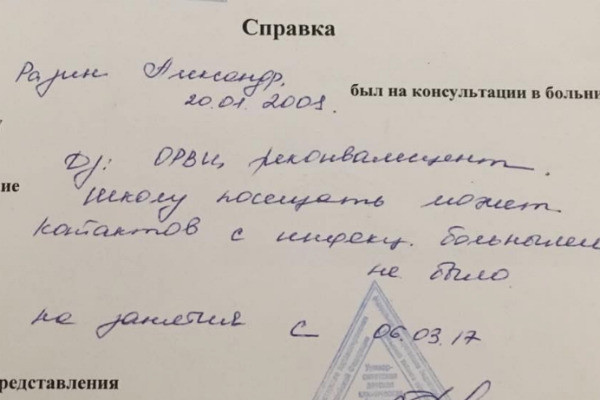 Справка
Разин Александр,
20.01.2009.
был на консультации в больни
ие
Ds: ОРВИ, реконвалесцент.
Школу посещать может
контактов с инфекц. больными
не было
на занятия с 06.03.17
редставления